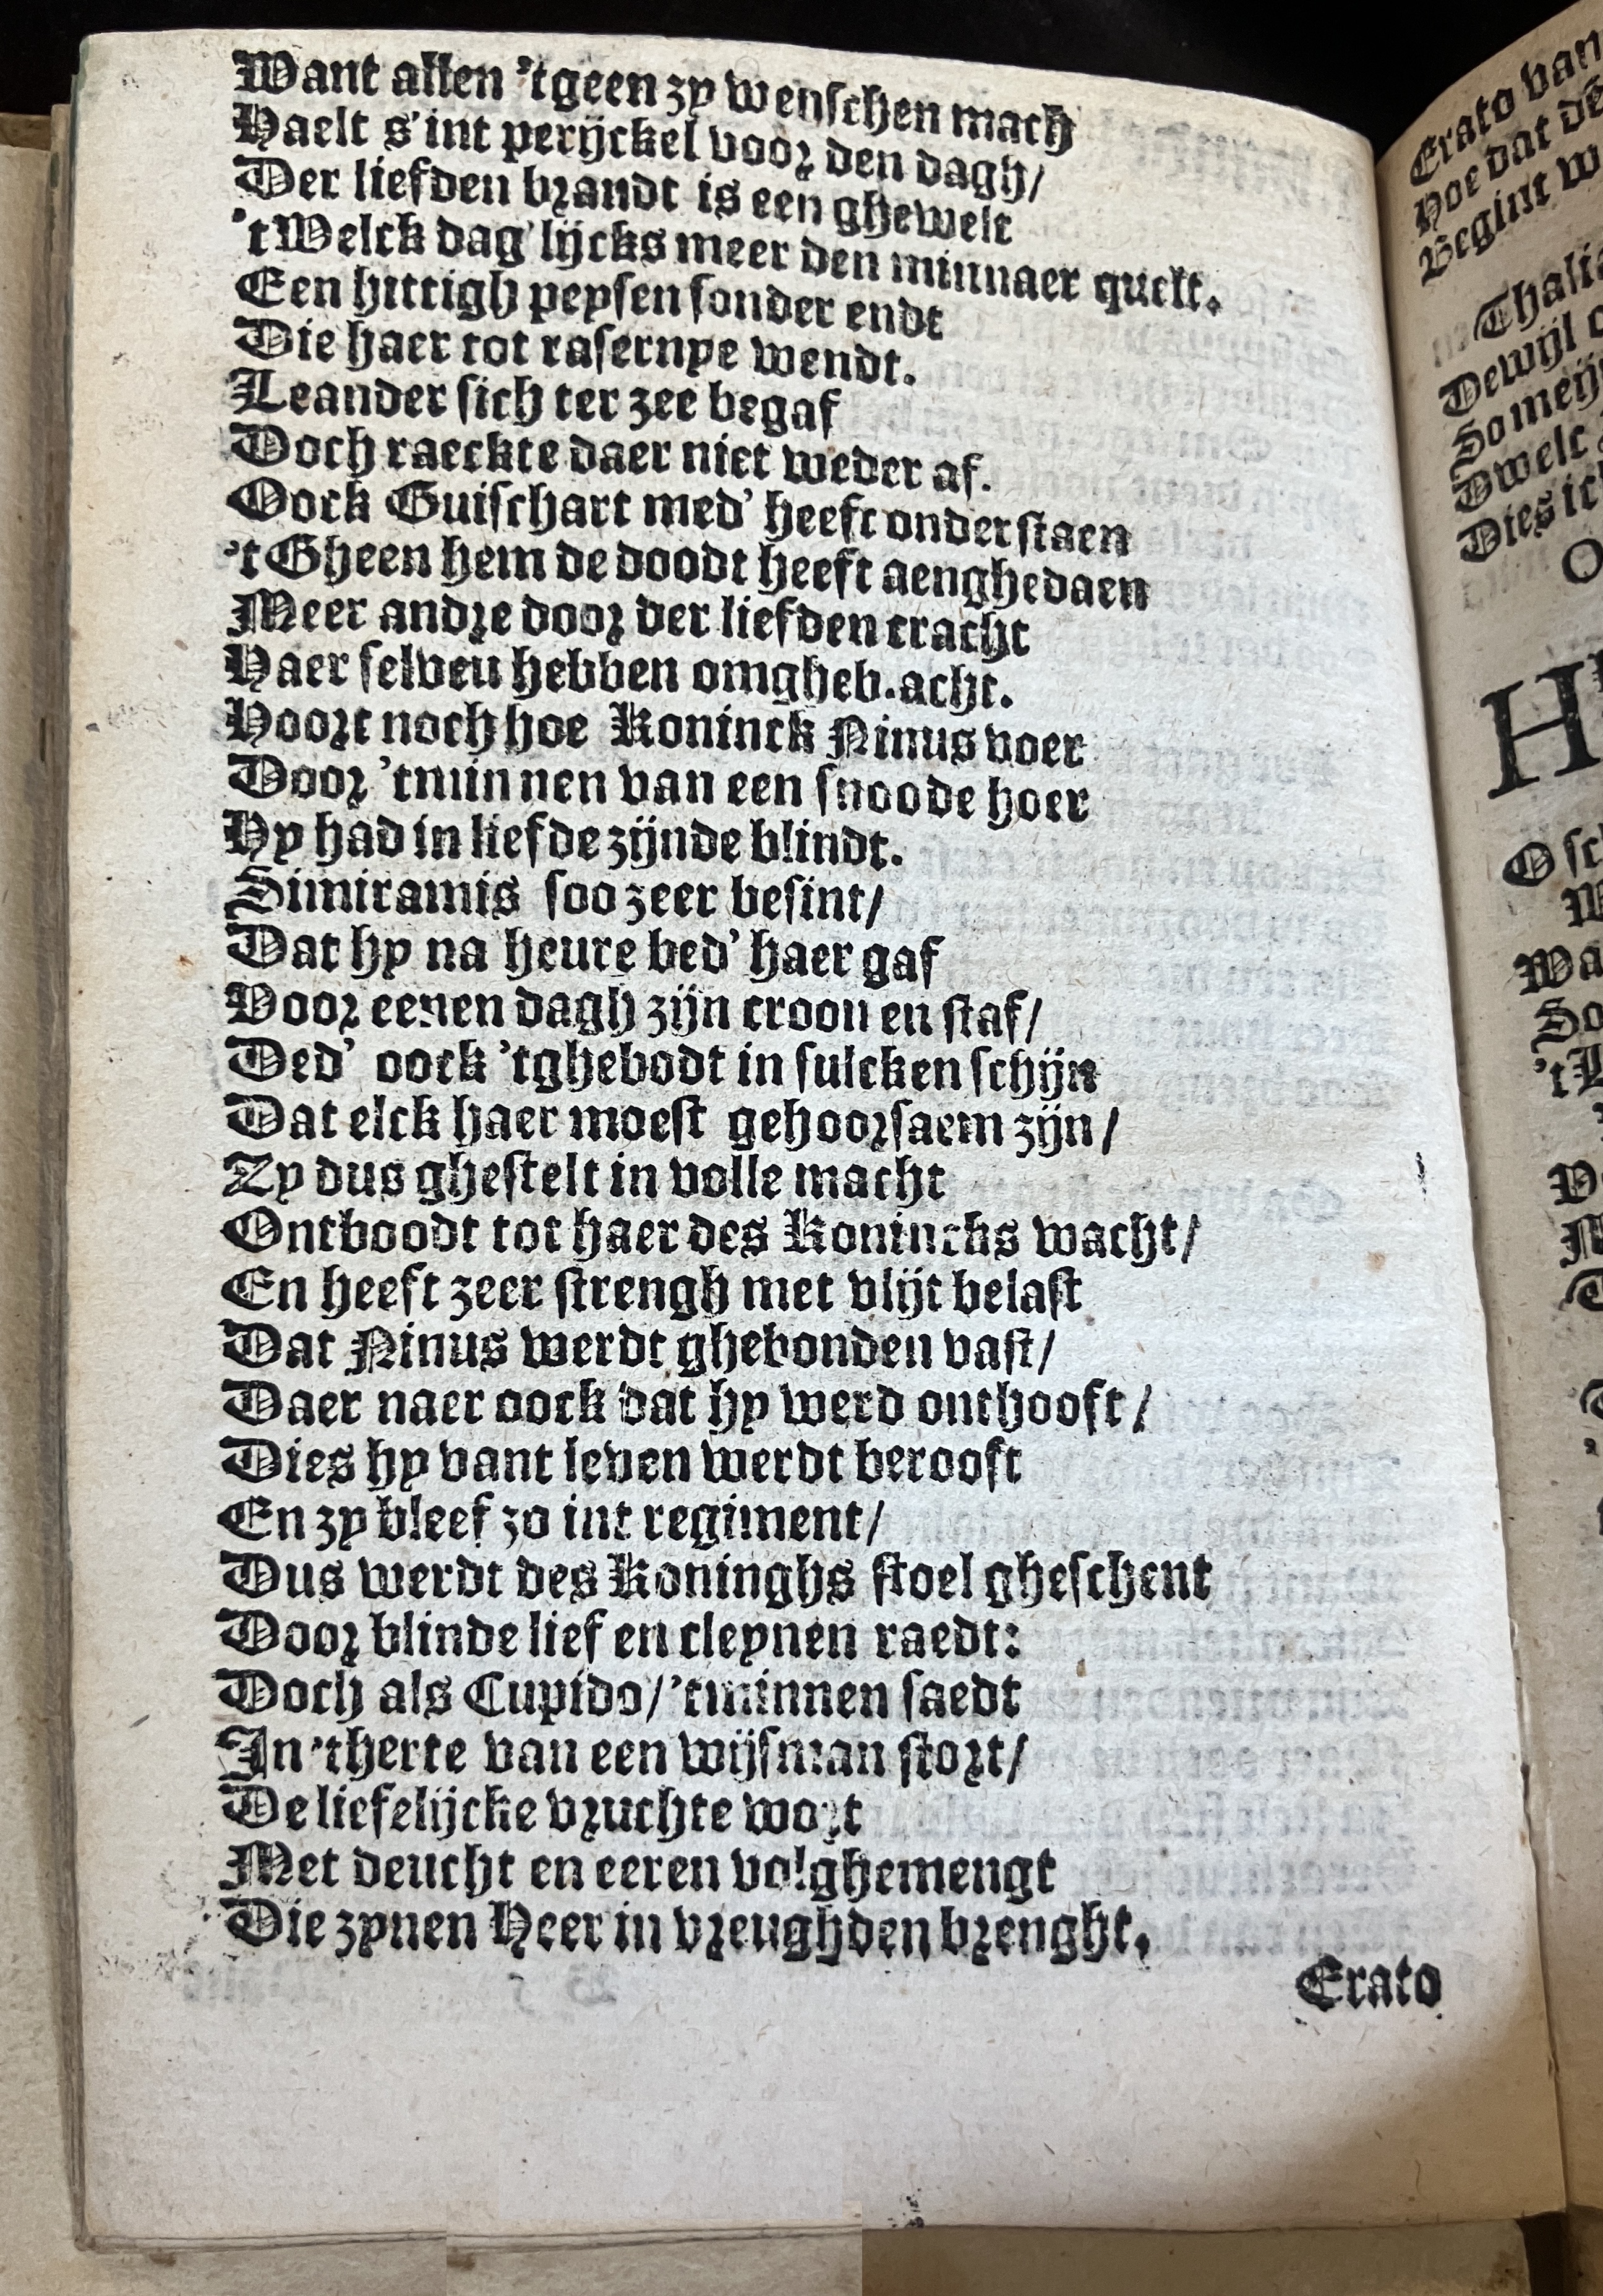 Want allen 'tgeen zy wenschen mach
Haelt s'int perijckel voor den dagh/
Der liefden brandt is een ghewelt
't Welck dag'lijcks meer den minnaer quelt.
Een hittigh peysen sonder endt
Die haer tot rasernye wendt.
Leander sich ter zee begaf
Doch raeckte daer niet weder af.
Oock Guischart med' heeft onderstaen
't Gheen hem de doodt heeft aenghedaen
Meer andre door der liefden cracht
Haer selveu hebben omgheb.acht.
Hoort noch hoe Koninck Ninus voer
Door 'tminnen van een snoode hoer
Hy had in liefde zijnde blindt.
Simiramis soo zeer besint/
Dat hy na heure bed' haer gaf
Voor eenen dagh zijn croon en staf/
Ded' oock 'tghebodt in sulcken schijn
Dat elck haer moest gehoorsaem zijn/
Zy dus ghestelt in volle macht
Ontboodt tot haer des Konincks wacht/
En heeft zeer strengh met vlijt belast
Dat Ninus werdt ghebonden vast/
Daer naer oock dat hy werd onthooft/
Dies hy vant leven werdt berooft
En zy bleef zo int regiment/
Dus werdt des Koninghs stoel gheschent
Door blinde lief en cleynen raedt:
Doch als Cupido/'tminnen saedt
In 'therte van een wijsman stort/
De liefelijcke vruchte wort
Met deucht en eeren volghemengt
Die zynen Heer in vreughden brenght.
Erato
Erato van
Hoe dat de
Begint w
Thalia
Dewijl
So meij
Dwelt
Dies ick
O
H
O sc
Wa
So